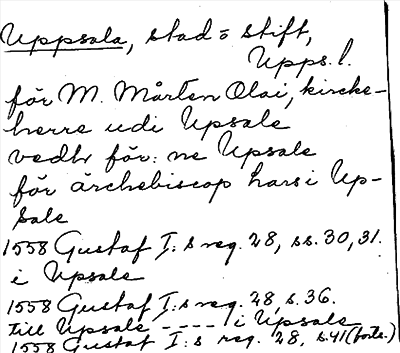 Uppsala, stad o stift,
Upps. l.
för M. Mårten Olai, kircke-
herre udi Upsale
vedhr för: ne Upsale
för ärchebiscop hars i Up-
sale
1558 Gustaf I:s reg. 28, ss. 30, 31.
i Upsale
1558 Gustaf I:s reg. 28, s. 36.
till Upsale ---- i Upsale
1558 Gustaf I:s reg. 28, s. 41 (forts.)